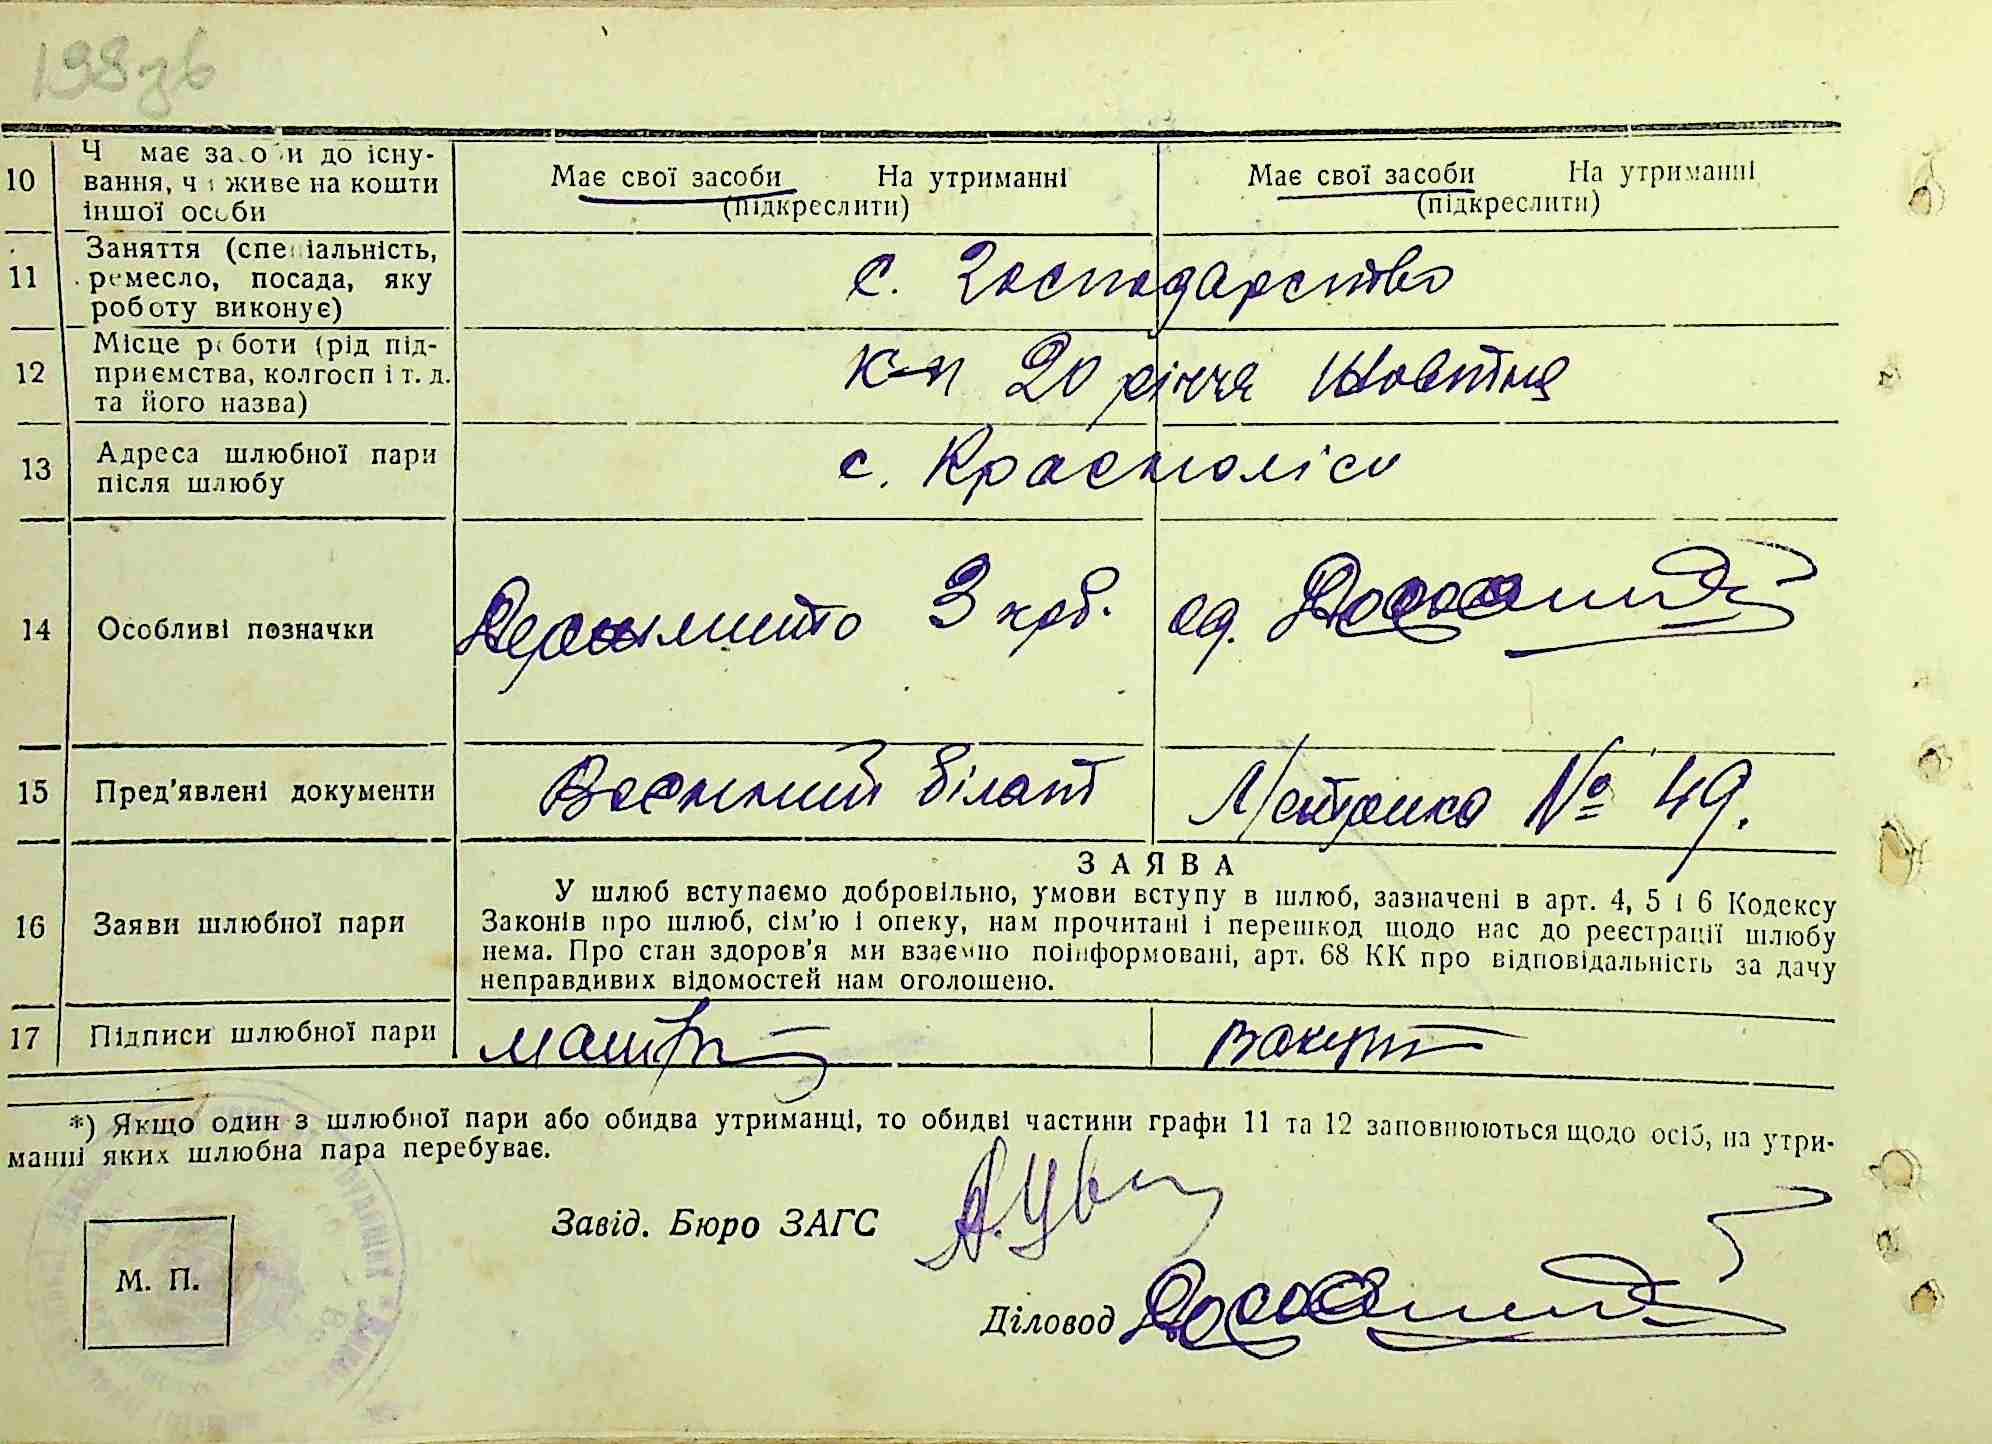 198зв
10 Чи має засоби до існу-
вання, чи живе на кошти
іншої особи
Має свої засоби На утриманні
(підкреслити)
Має свої засоби На утриманні
(підкреслити)
11 Заняття (спеціальність,
ремесло, посада, яку
роботу виконує)
с. господарство
12 Місце роботи (рід під-
приємства, колгосп і т. д.
та його назва)
к-п 20 річчя Жовтня
13 Адреса шлюбної пари
після шлюбу
с. Красноліси
14 Особливі позначки
3 крб.
од.
15 Пред'явлені документи
Воєнний білет
Метрика № 49.
16 Заяви шлюбної пари
ЗАЯВА
У шлюб вступаємо добровільно, умови вступу в шлюб, зазначені в арт. 4, 5 і 6 Кодексу
Законів про шлюб, сім'ю і опеку, нам прочитані і перешкод щодо нас до реєстрації шлюбу
нема. Про стан здоров'я ми взаємно поінформовані, арт. 68 КК про відповідальність за дачу
неправдивих відомостей нам оголошено.
17 Підписи шлюбної пари
*) Якщо один з шлюбної пари або обидва утриманці, то обидві частини графи 11 та 12 заповнюються щодо осіб, на утри-
манні яких шлюбна пара перебуває.
Завід. Бюро ЗАГС
М. П.
Діловод